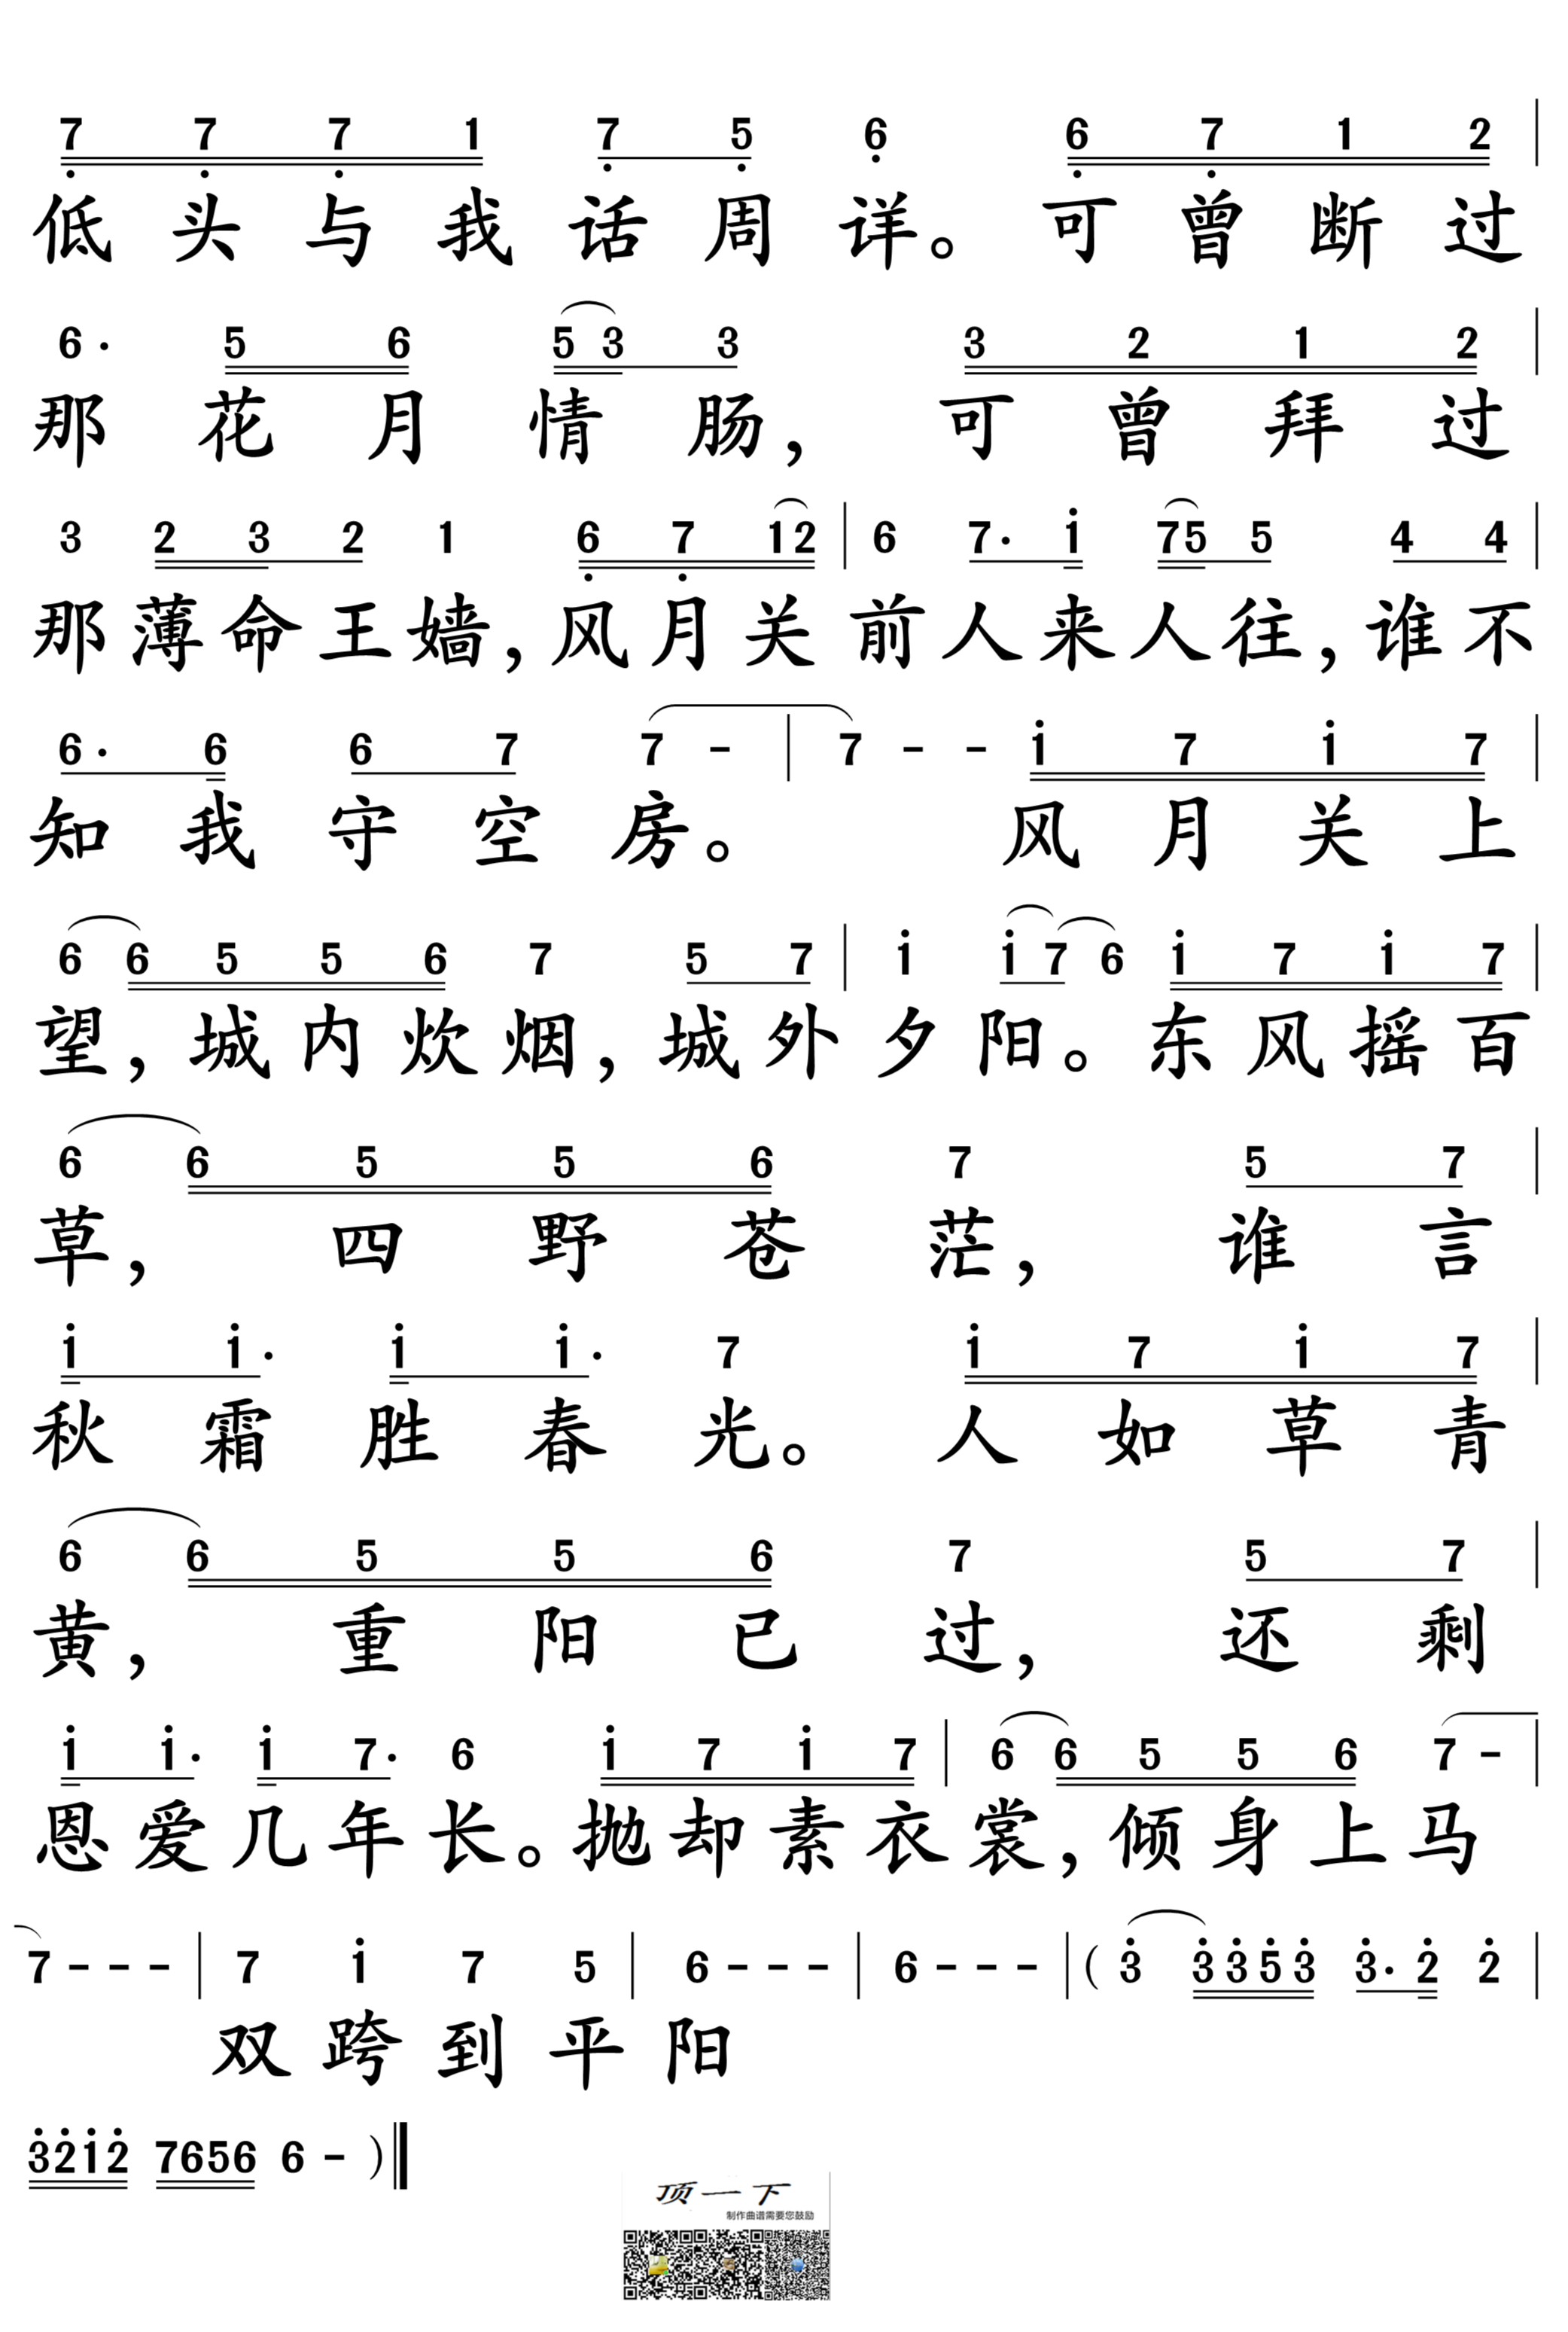 7 7 7 1 7 5 6 6 7 1 2 |
低头与我话周详。可曾断过
6· 5 6 5 3 3 3 2 1 2 |
那花月情肠，可曾拜过
3 2 3 2 1 6 7 12 | 6 7· i 75 5 4 4 |
那薄命王嫱，风月关前人来人往，谁不
6· 6 6 7 7 - | 7 - - i 7 i 7 |
知我守空房。风月关上
6 6 5 5 6 7 5 7 | i i 7 6 i 7 i 7 |
望，城内炊烟，城外夕阳。东风摇百
6 6 5 5 6 7 5 7 |
草，四野苍茫，谁言
i i· i i· 7 i 7 i 7 |
秋霜胜春光。人如草青
6 6 5 5 6 7 5 7 |
黄，重阳已过，还剩
i i· i 7· 6 i 7 i 7 | 6 6 5 5 6 7 - |
恩爱几年长。抛却素衣裳，倾身上马
7 - - - | 7 i 7 5 | 6 - - - | 6 - - - | ( 3 3353 3· 2 2 |
双跨到平阳
3212 7656 6 - )
顶一下
制作曲谱需要您鼓励